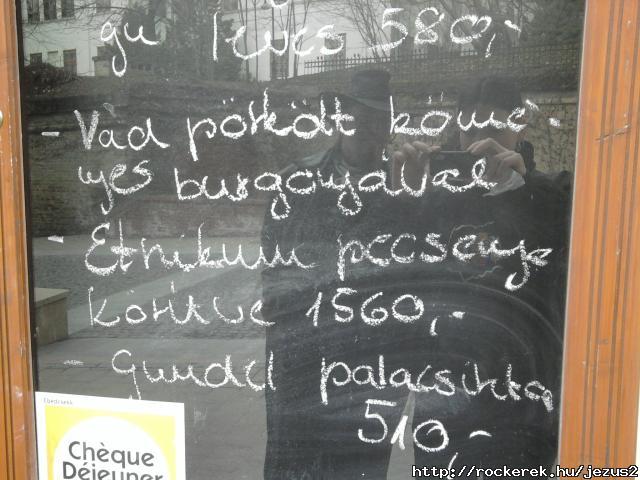 gu leves 580,-
- Vad pörkölt köme-
nyes burgonyával
- Etnikum pecsenye
körítve 1560,-
- Gundel palacsinta
510,-
Ebédcsekk
Chèque
Déjeuner
http://rockerek.hu/jezus2